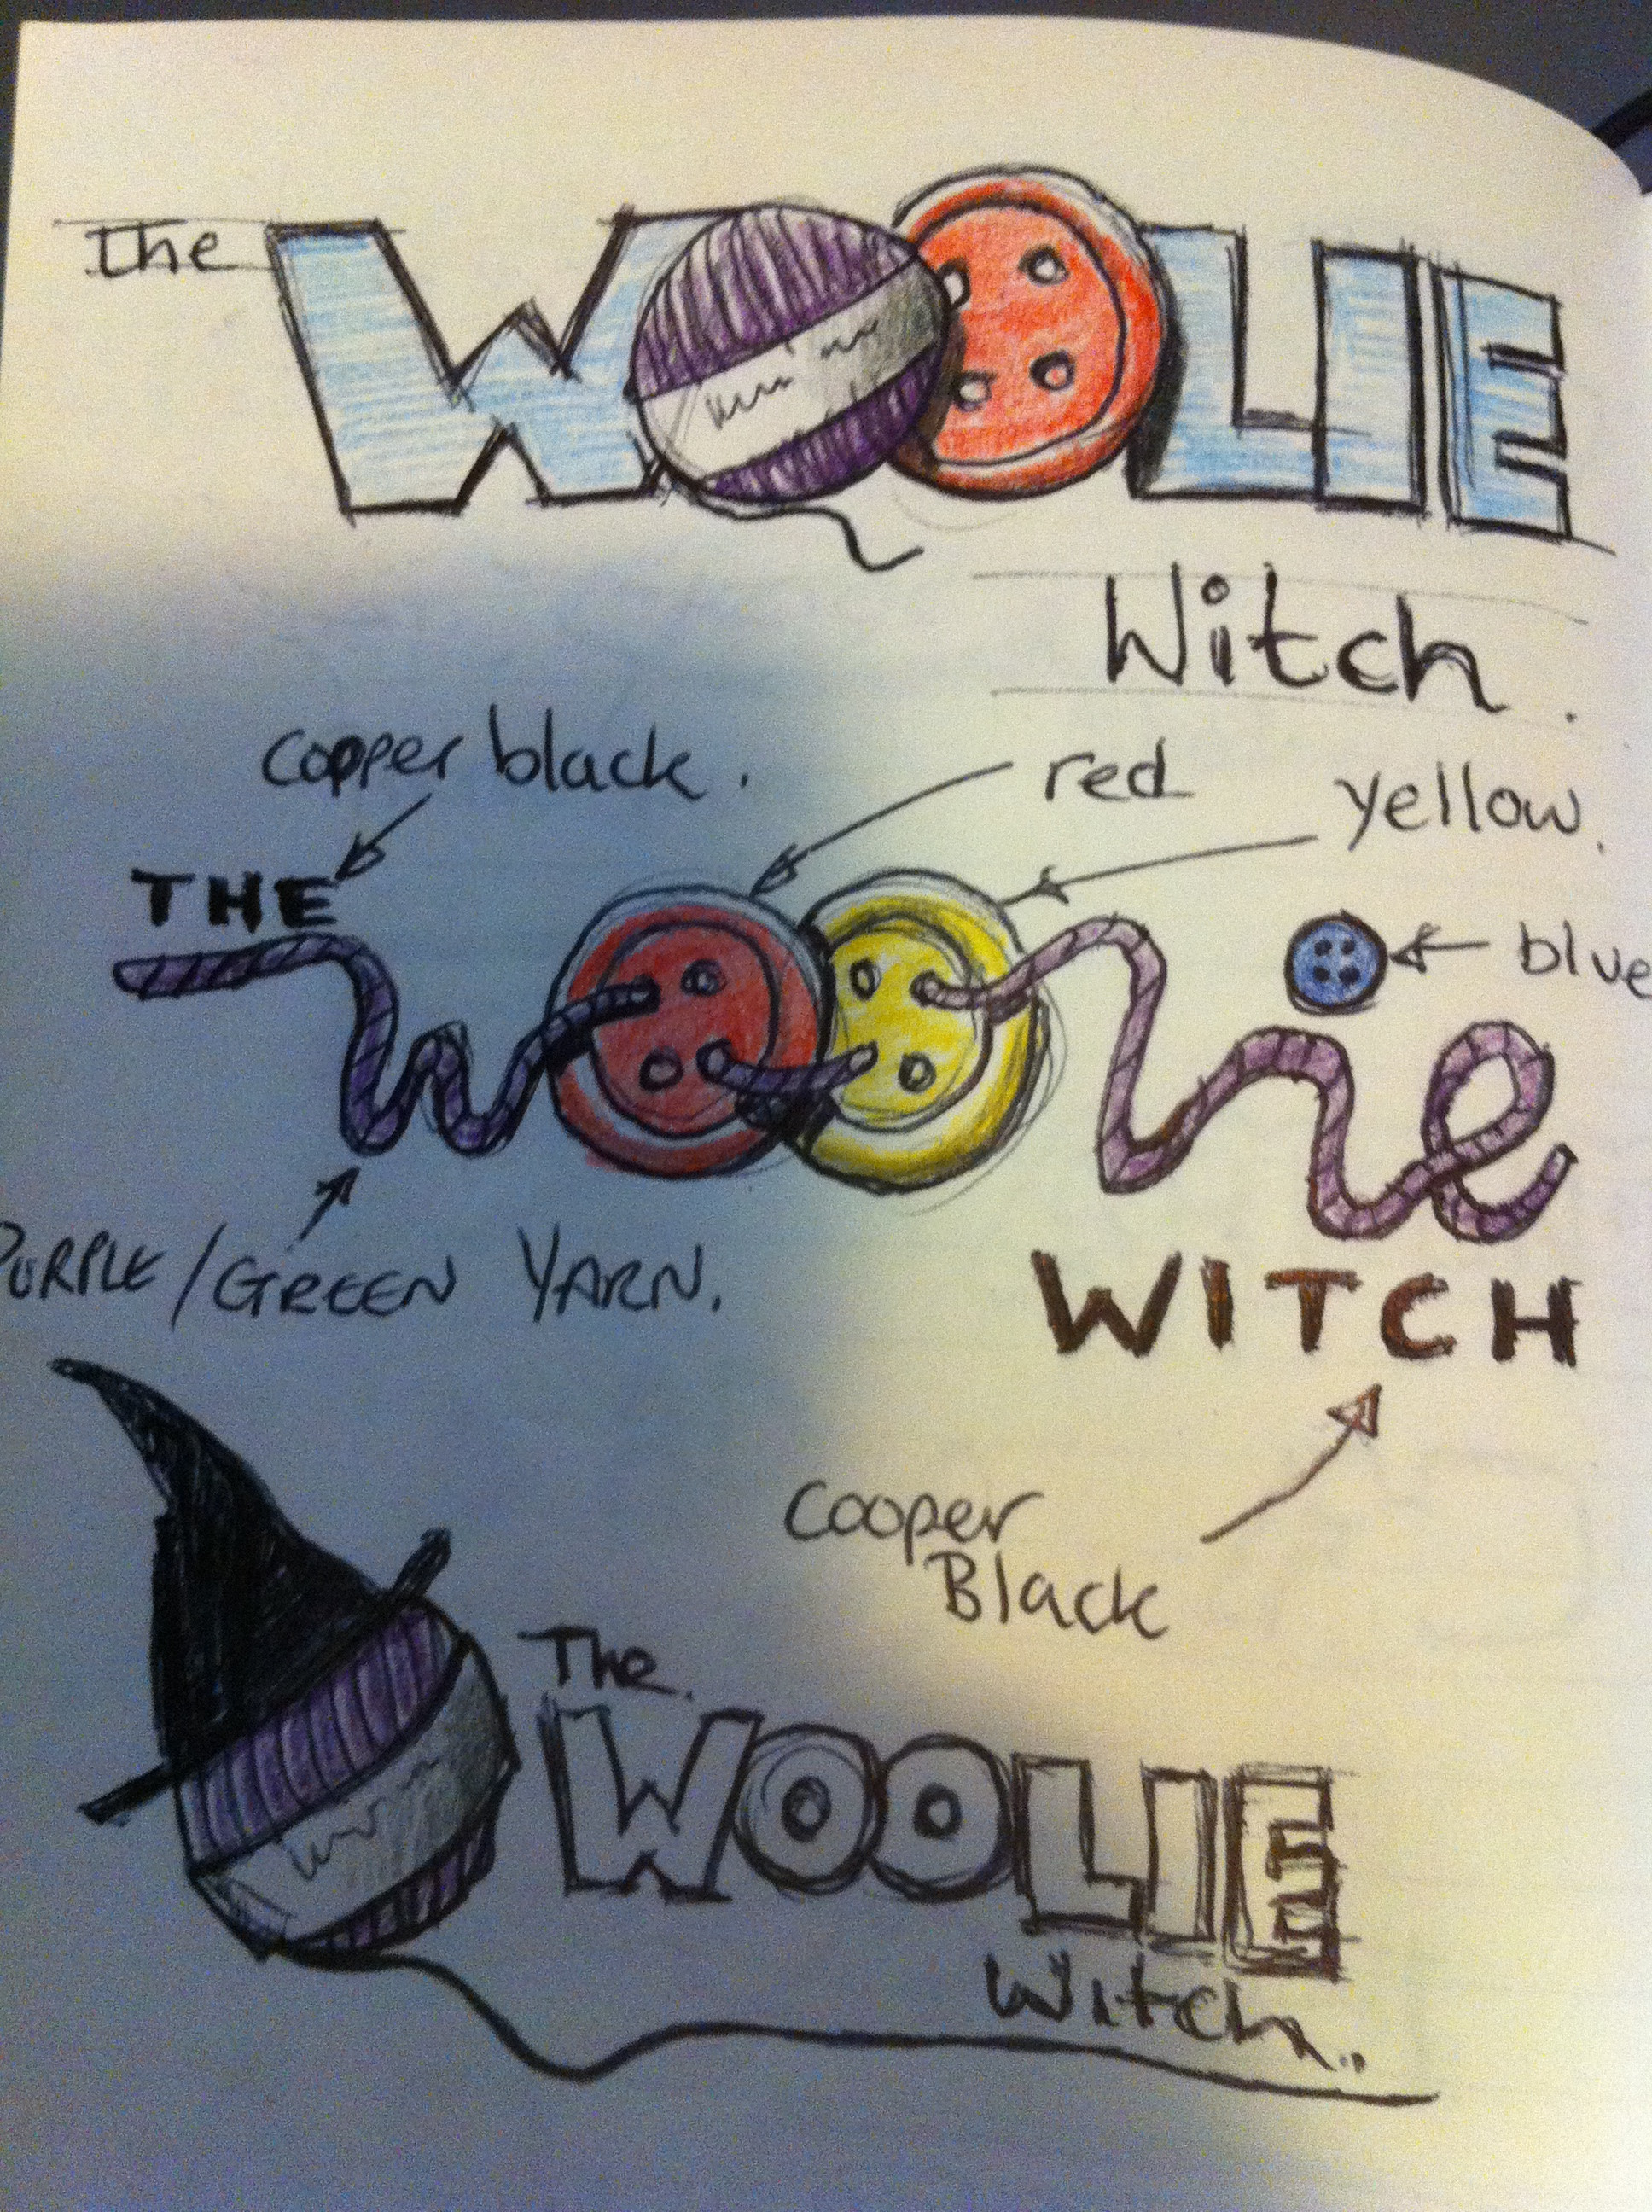 the WOOLIE
Witch.
copper black.
red
yellow.
THE
woolie
blue
PURPLE/GREEN YARN.
WITCH
Cooper
Black
The
WOOLIE
Witch..